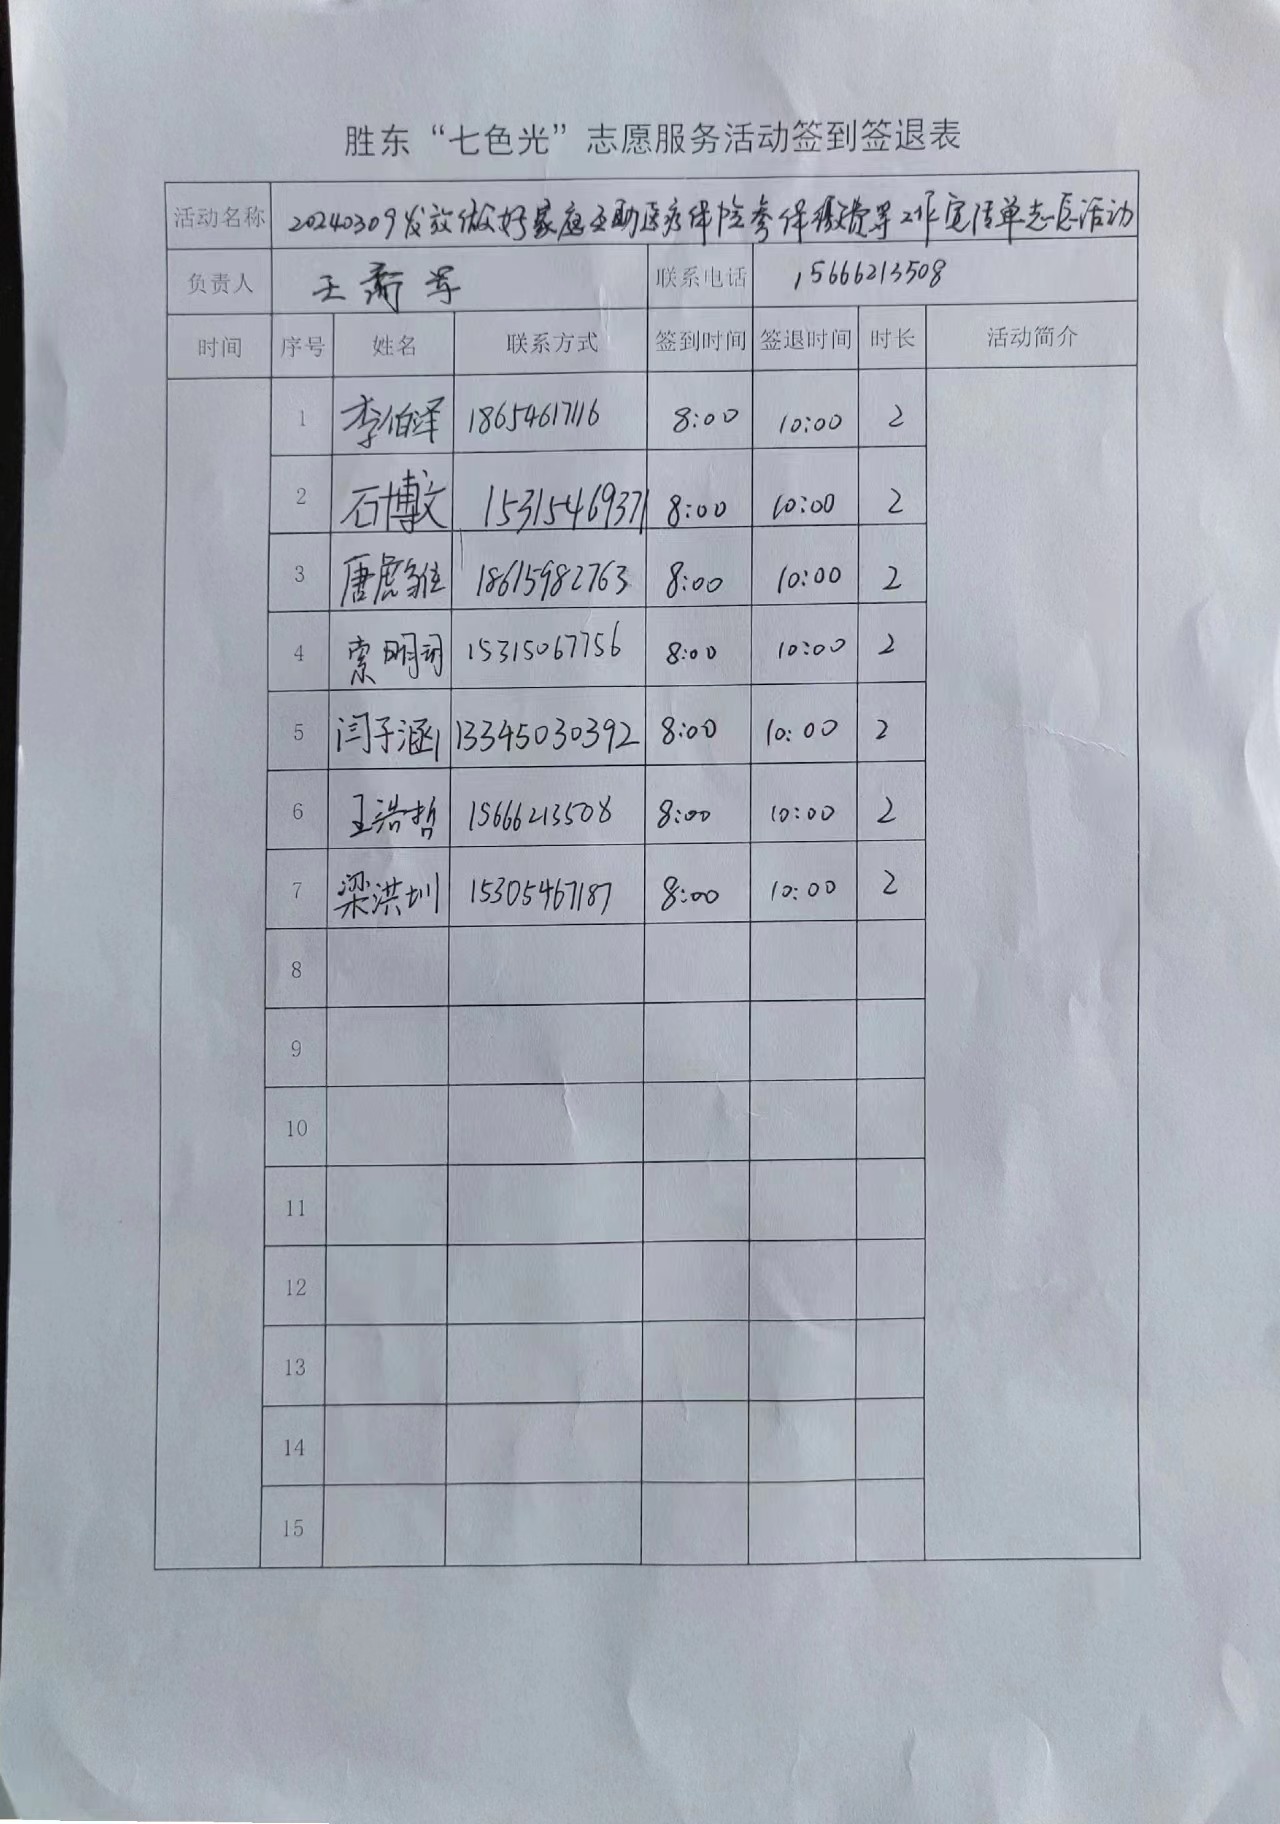 胜东“七色光”志愿服务活动签到签退表
活动名称 20240309发放做好家庭互助医疗保险参保缴费等工作宣传单志愿活动
负责人 王 军 联系电话 15666213508
时间 序号 姓名 联系方式 签到时间 签退时间 时长 活动简介
1 李伯泽 18654617116 8:00 10:00 2
2 石博文 15315469371 8:00 10:00 2
3 唐 18615982763 8:00 10:00 2
4 索明词 15315067756 8:00 10:00 2
5 闫子涵 13345030392 8:00 10:00 2
6 王浩哲 15666213508 8:00 10:00 2
7 梁洪圳 15305467187 8:00 10:00 2
8
9
10
11
12
13
14
15